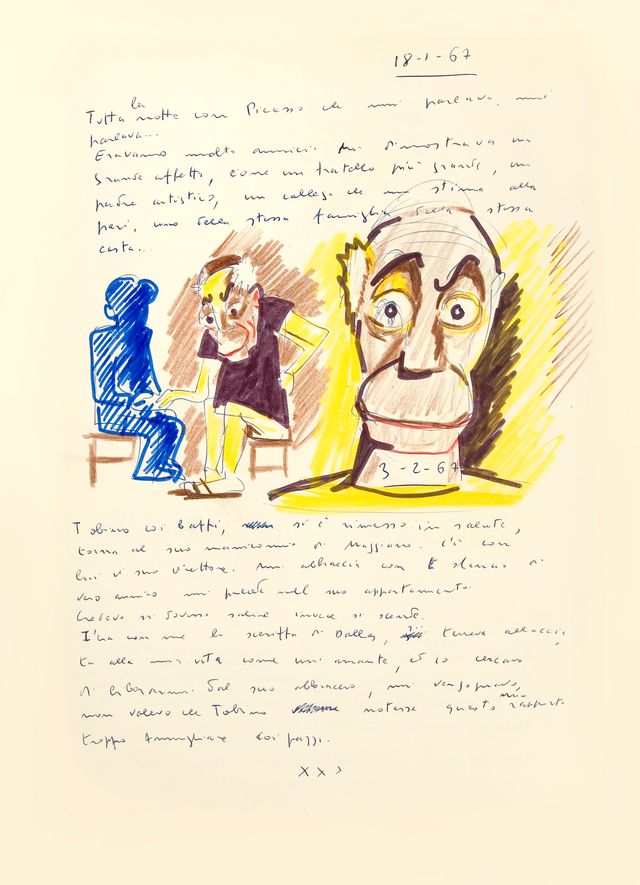 18-1-67
Tutta la notte con Picasso che mi parlava, mi
parlava...
Eravamo molto amici. Mi dimostrava un
grande affetto, come un fratello più grande, un
padre artistico, un collega che mi stimava alla
pari, uno della stessa famiglia della stessa
casta...
3-2-67
Tobino coi baffi, si è rimesso in salute,
torna al suo manicomio di Maggiano. C'è con
lui il suo direttore. Mi abbraccia con slancio di
vero amico mi precede nel suo appartamento.
Credevo si dovesse salire invece si scende.
con me la di Dallas, teneva allaccia,
ta alla mia vita come un'amante, ed io cercavo
di liberarmi dal suo abbraccio, mi vergognavo,
non volevo che Tobino notasse questo mio rapporto
troppo famigliare coi pazzi.
X X X